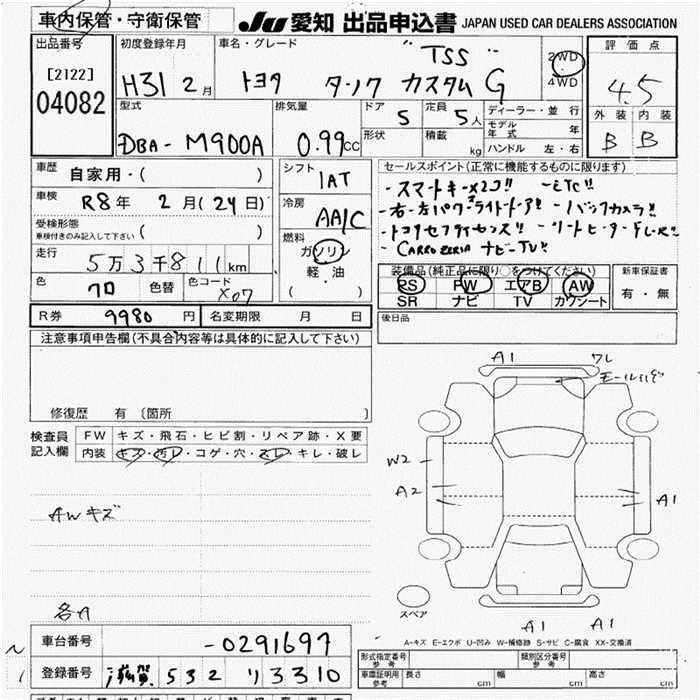 車内保管・守衛保管
JU 愛知 出品申込書 JAPAN USED CAR DEALERS ASSOCIATION
出品番号
[2122]
04082
初度登録年月
H31 2月
車名・グレード
"TSS"
トヨタ タンク カスタムG
2WD
4WD
評価点
4.5
外装 内装
B B
型式
DBA-M900A
排気量
0.99CC
ドア 5
定員 5人
形状
積載 kg
ディーラー・並行
モデル年式 年
ハンドル 左・右
車歴
自家用・( )
車検
R8年 2月(24日)
受検形態
車検付きのみ記入して下さい ( )
走行
5万3千811km
色 クロ 色替 色コード X07
シフト
1AT
冷房
AA/C
燃料
ガソリン
軽・油
( )
セールスポイント(正常に機能するものに限ります)
・スマートキー×2コ!! ーETC!!
・右・左パワースライドドア!! ・バックカメラ!!
・トヨタセーフティセンス!! ・シートヒーターFL・R!!
・CARROZZERIA ナビーTV!!
装備品(純正品に限り○をつけてください)
PS PW エアB AW
SR ナビ TV カワシート
新車保証書
有・無
R券 9980円 名変期限 月 日
後日品
注意事項申告欄(不具合内容等は具体的に記入して下さい)
修復歴 有(箇所 )
検査員記入欄
FW キズ・飛石・ヒビ割・リペア跡・X要
内装 キズ・汚レ・コゲ・穴・スレ・キレ・破レ
AWキズ
各A
A1 ワレ
モールハゲ
W2
A2
A1
スペア
A1 A1
A-キズ E-エクボ U-凹み W-補修跡 S-サビ C-腐食 XX-交換済
車台番号 -0291697
登録番号 滋賀 532 リ 3310
形式指定番号 参考
類別区分番号 参考
車庫証明用 参考 長さ cm 幅 cm 高さ cm